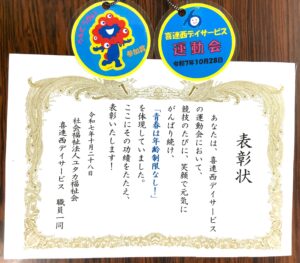 参加賞
喜連西デイサービス
運動会
令和7年10月28日
表彰状
あなたは、喜連西デイサービス
の運動会において、
競技のたびに、笑顔で元気に
がんばり続け、
「青春は年齢制限なし！」
を体現していました。
ここにその功績をたたえ、
表彰いたします！
令和七年十月二十八日
社会福祉法人ユタカ福祉会
喜連西デイサービス 職員一同